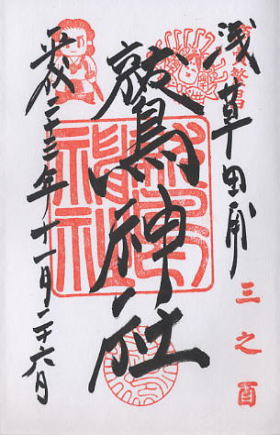 浅草田甫
三之酉
鷲神社
平成二十三年十一月二十六日